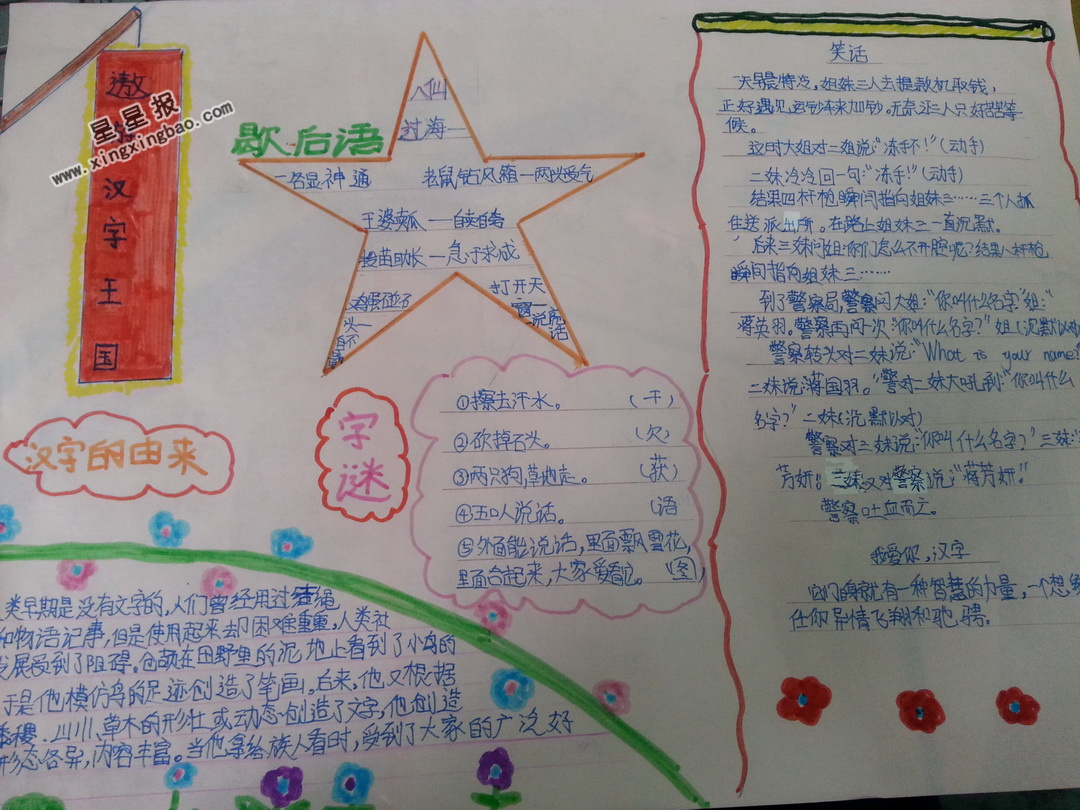 遨
汉
字
王
国
星星报
www.xingxingbao.com
歇后语
八仙
过海一
一各显神通
老鼠钻风箱一两头受气
王婆卖瓜——自卖自夸
拔苗助长—急于求成
鸡蛋碰石
头一
打开天
窗一
说亮
话
汉字的由来
字
谜
①擦去汗水。 (干)
②砍掉石头。 (欠)
③两只狗,草地走。 (获)
④五口人说话。 (语
⑤外面能说话,里面飘雪花,
(图)
类早期是没有文字的,人们曾经用过结绳
和物语记事,但是使用起来却困难重重。人类社
发展受到了阻碍。仓颉在田野里的泥地上看到了小鸟的
于是他模仿鸟的足迹创造了笔画。后来,他又根据
川、草木的形壮或动态创造了文字,他创造
形态各异,内容丰富。当他拿给族人看时,受到了大家的广泛好
笑话
一天早晨特冷,姐妹三人去提款机取钱,
正好遇见运钞车来加钞。无奈三人只好苦苦等
候。
这时大姐对二姐说:“冻不!”(动手)
二妹冷冷回一句:“冻手!”(动手)
结果四杆枪瞬间指向姐妹三……三个人抓
住送派出所。在路上姐妹三一直沉默。
后来三妹问姐:你们怎么不开腔呢?结果八杆枪
瞬间指向姐妹三……
到了警察局警察问大姐:“你叫什么名字”姐:“
蒋英羽。警察再问一次:“你叫什么名字?”姐(沉默以对
警察转头对二妹说:“What is your name?
二妹说:蒋国羽。”警对二妹大吼到:“你叫什么
名字?”二妹(沉默以对)
警察对三妹说:“你叫什么名字?”三妹:“
芳妍。三妹又对警察说:“蒋芳妍。”
警察吐血而亡。
我爱你,汉字
它们自身就有一种智慧的力量,一个想象
任你异情飞翔和驰骋。